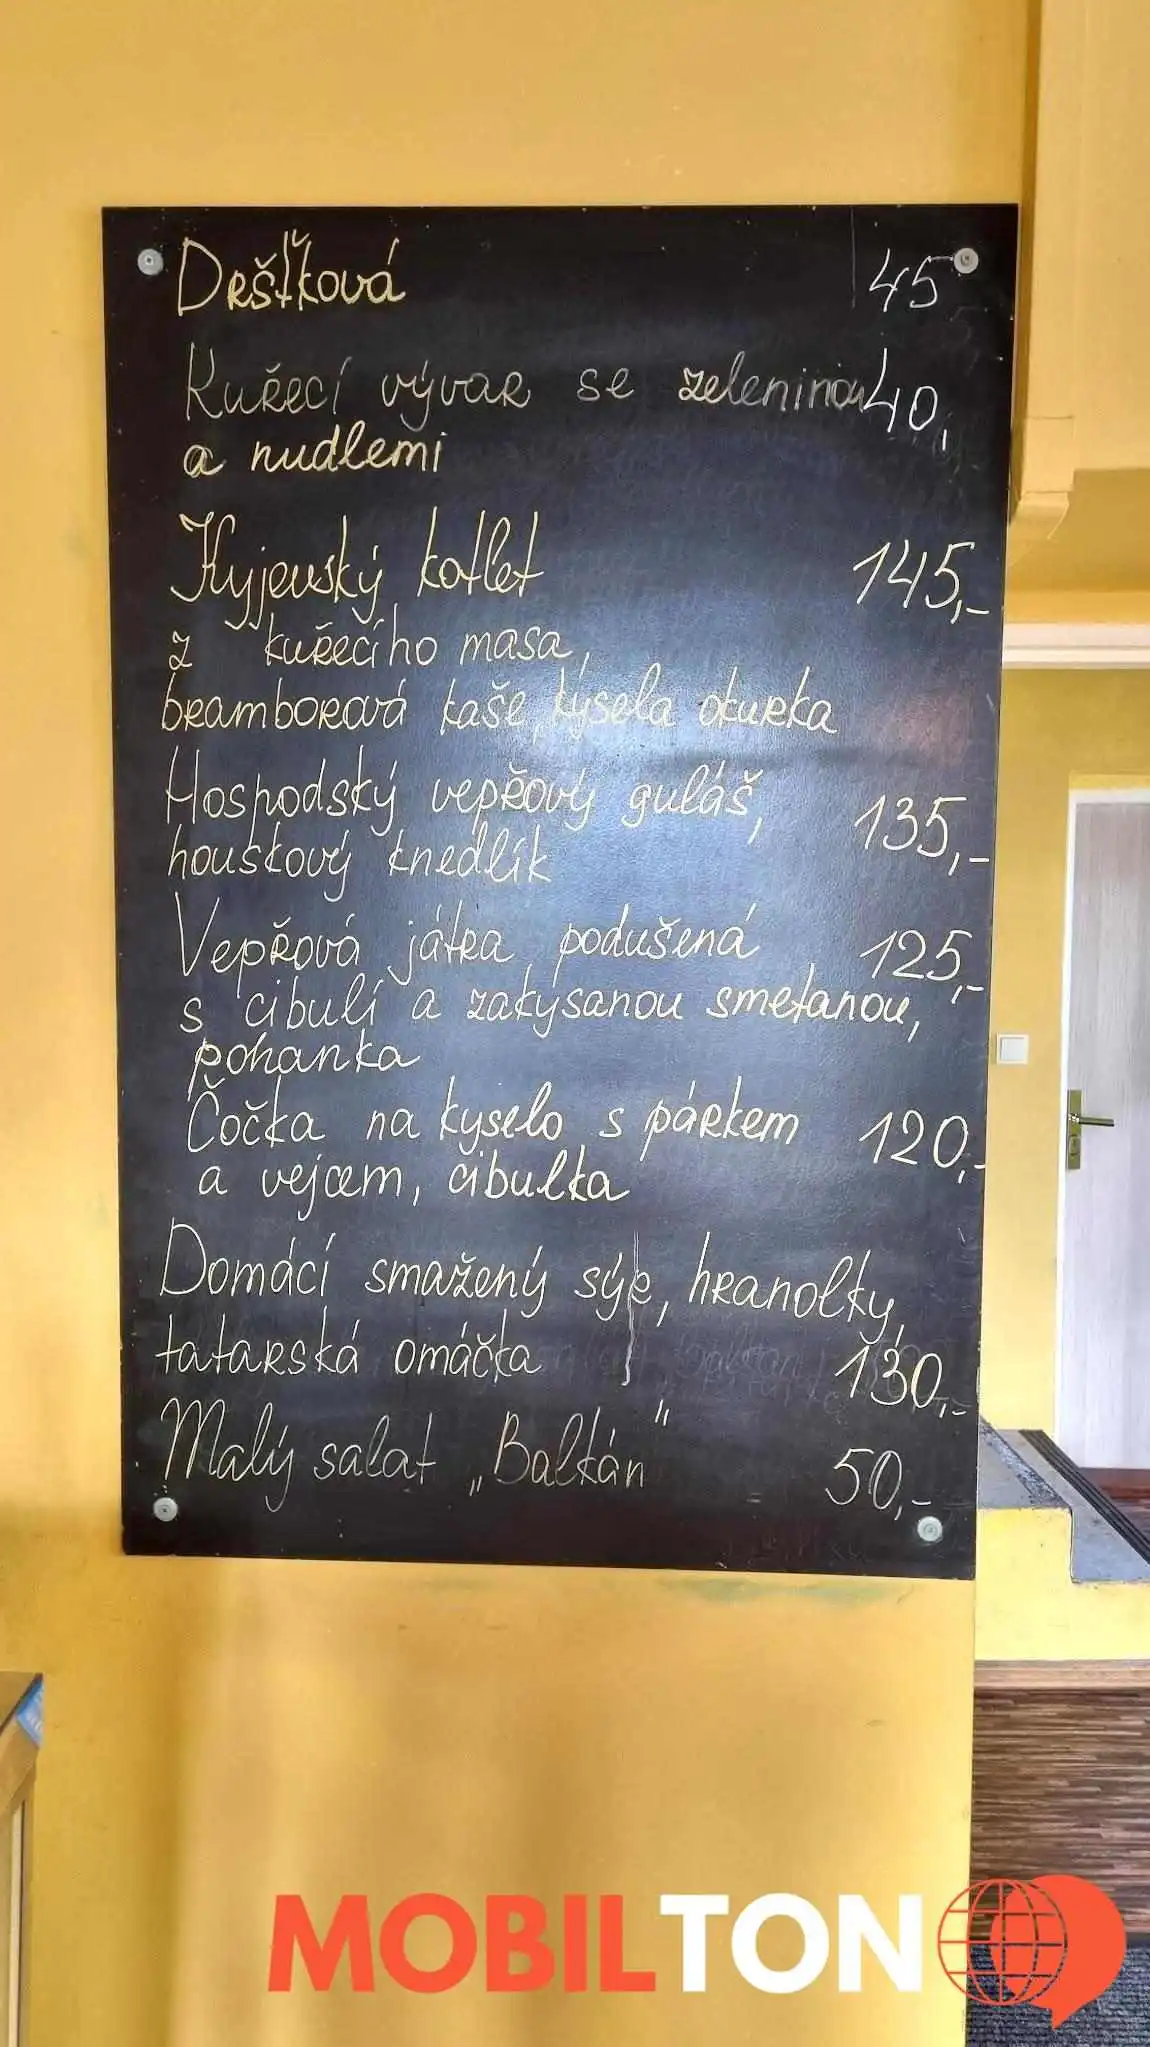 Dršťková 45
Kuřecí vývar se zeleninou 40,
a nudlemi
Kyjevský kotlet 145,-
z kuřecího masa,
bramborová kaše, kysela okurka
Hospodský vepřový guláš, 135,-
houskový knedlík
Vepřová játra podušená 125,-
s cibulí a zakysanou smetanou,
pohanka
Čočka na kyselo s párkem 120,-
a vejcem, cibulka
Domácí smažený sýr, hranolky,
tatarská omáčka 130,-
Malý salat „Balkán" 50,-
MOBILTON